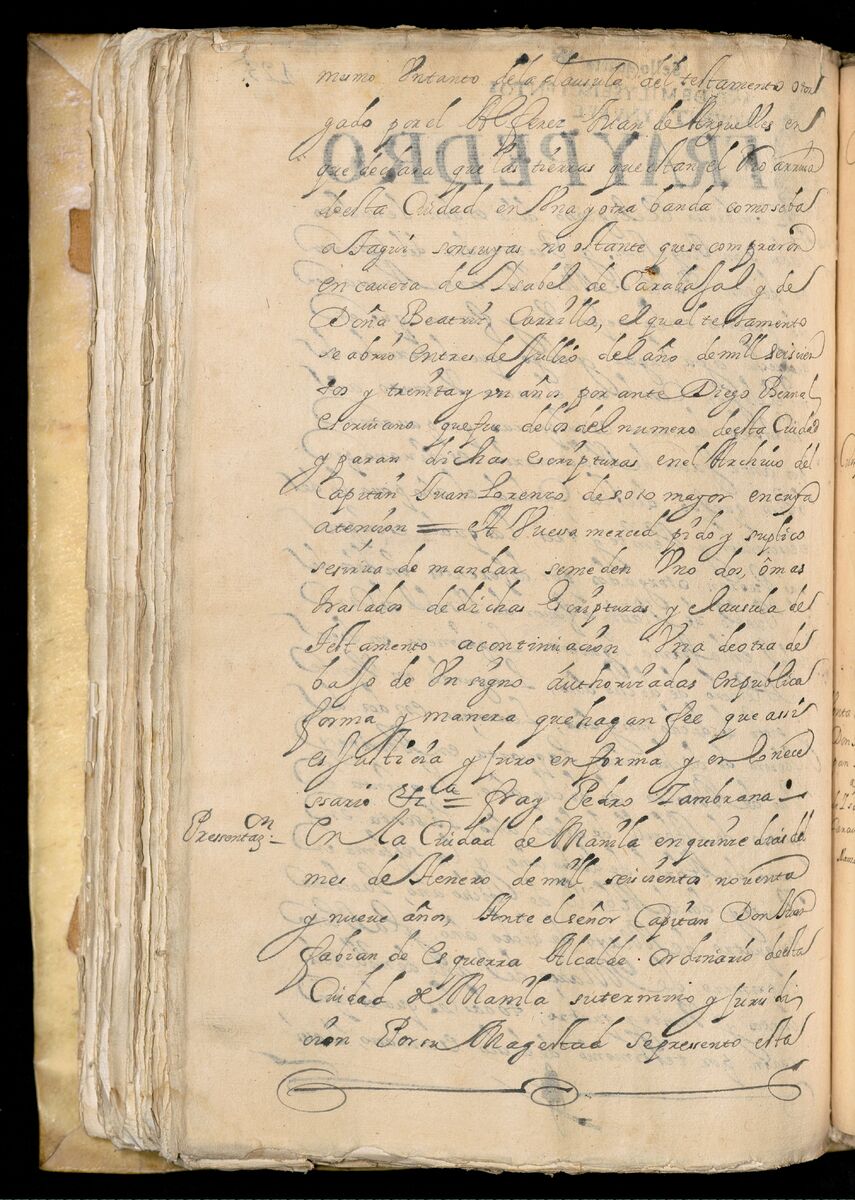 mismo Untanto dela clausula del testamento otor
gado por el Alferez Juan de Arguelles en
que declara que las tierras que estan el Rio arriva
deesta Ciudad en Una y otra banda como seba
a Taguî son suyas no ostante que se compraron
en caveza de Isabel de Carabajal y de
Doña Beatriz Carrillo, el qual testamento
se abrio en tres de Jullio del año de mill seiscien
tos y treinta y un años por ante Diego Bernal
escrivano que fue delos del numero deesta Ciudad
y paran dichas escripturas en el Archivo del
Capitan Juan Lorenzo de soto mayor en cuya
atencion = A Vuesa merced pido y suplico
se sirva de mandar se me den Uno dos, ô mas
traslados de dichas Escripturas y clausula de
Testamento a continuacion Una de otra de
baso de Un signo authorizadas en publica
forma y manera que hagan fee que assi
es Justicia y Juro en forma y en lo nece
ssario &ta = fray Pedro Zambrana =
Pressentazon =
En la Ciudad de Manila en quinze dias del
mes de Henero de mill seiscientos noventa
y nueve años, Ante el señor Capitan Don Juan
fabian de Esguerra Alcalde ordinario deesta
Ciudad de Manila su termino y Jurisdi
cion Por su Magestad se presento esta
FRAY PEDRO